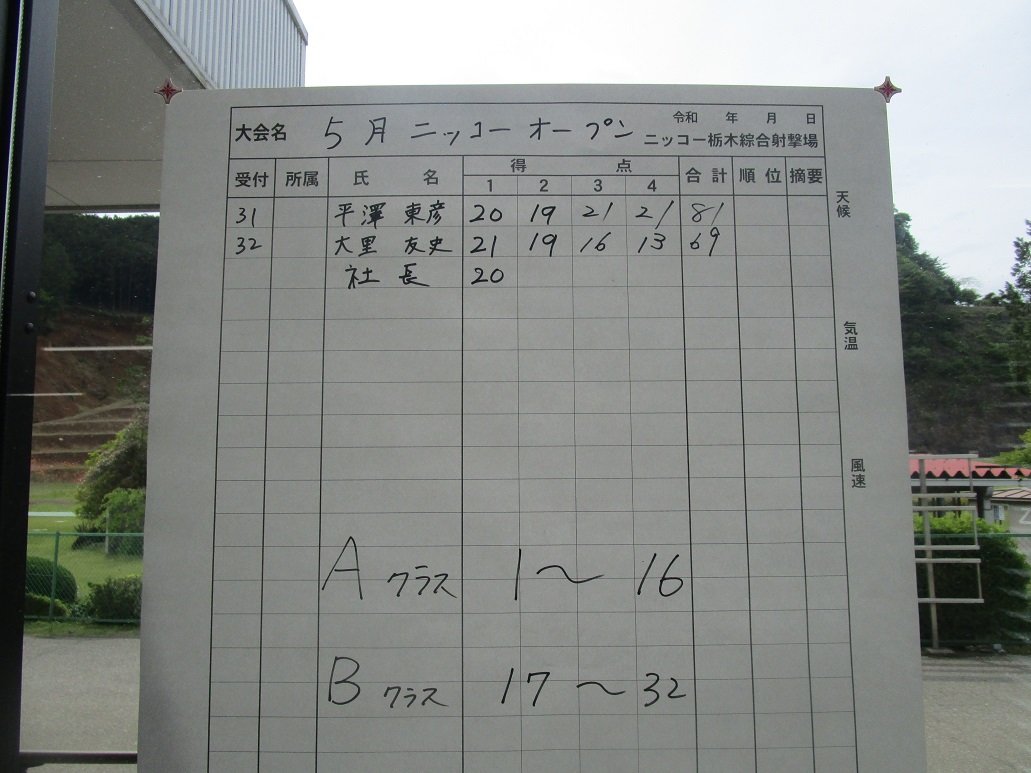 大会名 5月 ニッコーオープン 令和 年 月 日
ニッコー栃木綜合射撃場
受付 所属 氏 名 得 点 合計 順位 摘要
1 2 3 4
31 平澤 東彦 20 19 21 21 81
32 大里 友史 21 19 16 13 69
社長 20
天候
気温
風速
Aクラス 1〜16
Bクラス 17〜32